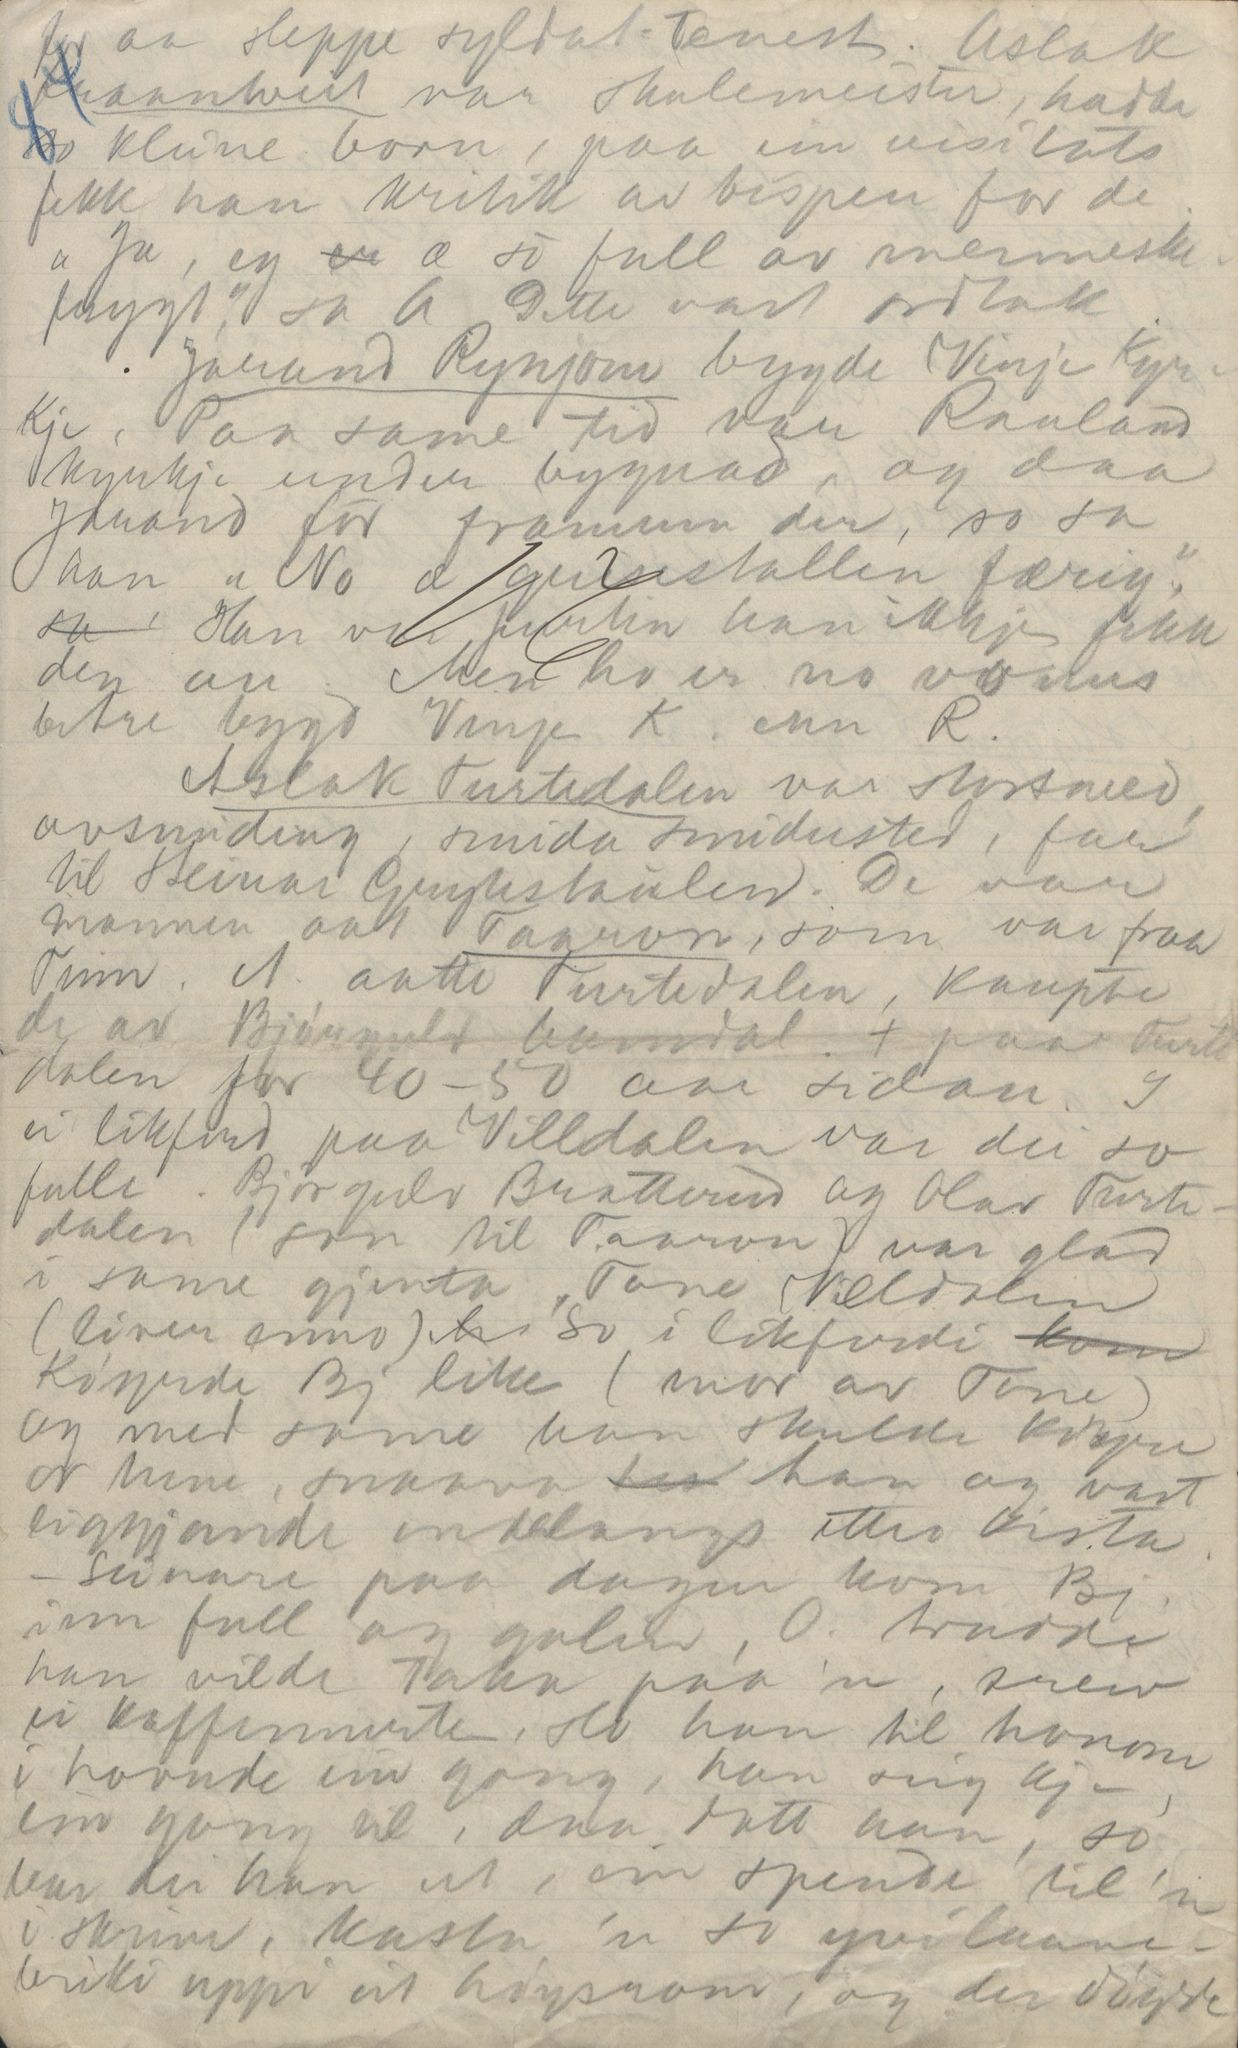 for aa sleppe syldat-Tenest. Aslak
84
var skulemeister, hadde
so kleine born, paa ein visitats
fekk han kritik av bispen for de.
"Ja, eg er æ so full av menneske-
frygt," sa A. Dette vart ordtak
Jorand Rynjom bygde Vinje Kyr-
kje, Paa same tid var Rauland
kyrkje under bygnad, og daa
Jorand for framum der, so sa
han "No æ stallen færig".
sa Han var han ikkje fekk
den au. Men ho er no
betre bygd Vinje K. enn R.
Aslak Turtedalen var storsmed,
avsmiding, smida smidusted, far
til Steinar De var
mannen aat Taaron, som var fraa
Tinn. A. aatte Turtedalen, kaupte
de av Bjørgulv + paa Turte
dalen for 40-50 aar sidan. I
ei likferd paa Villdalen var dei so
fulle. Bjørgulv Bratterud og Olav Turte-
dalen (son til Taaron) var glad
i same gjenta, Tone Villdalen
(liver enno) So i likferdi kom
Køyrde Bj liket (mor av Tone)
og med same han skulde køyre
or tune, snaava han og vart
liggjande endelangs etter kista.
- Seinare paa dagen kom Bj.
inn full og galen, O. trudde
han vilde Taka paa 'n, treiv
ei kaffemurte, slo han til honom
i hovude ein gong, han seig kje,
ein gong til, daa datt han, so
bar dei han ut, ein spende til 'n
i skrive, kasta 'n so
uppi eit høysrom, og der døydde